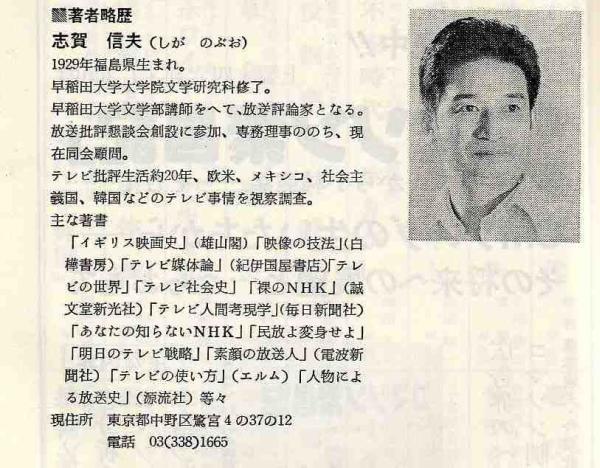 ▩著者略歴
志賀　信夫（しが　のぶお）
1929年福島県生まれ。
早稲田大学大学院文学研究科修了。
早稲田大学文学部講師をへて、放送評論家となる。
放送批評懇談会創設に参加、専務理事ののち、現
在同会顧問。
テレビ批評生活約20年、欧米、メキシコ、社会主
義国、韓国などのテレビ事情を視察調査。
主な著書
「イギリス映画史」（雄山閣）「映像の技法」（白
樺書房）「テレビ媒体論」（紀伊国屋書店）「テレ
ビの世界」「テレビ社会史」「裸のNHK」（誠
文堂新光社）「テレビ人間考現学」（毎日新聞社）
「あなたの知らないNHK」「民放よ変身せよ」
「明日のテレビ戦略」「素顔の放送人」（電波新
聞社）「テレビの使い方」（エルム）「人物によ
る放送史」（源流社）等々
現住所　東京都中野区鷺宮4の37の12
電話　03(338)1665